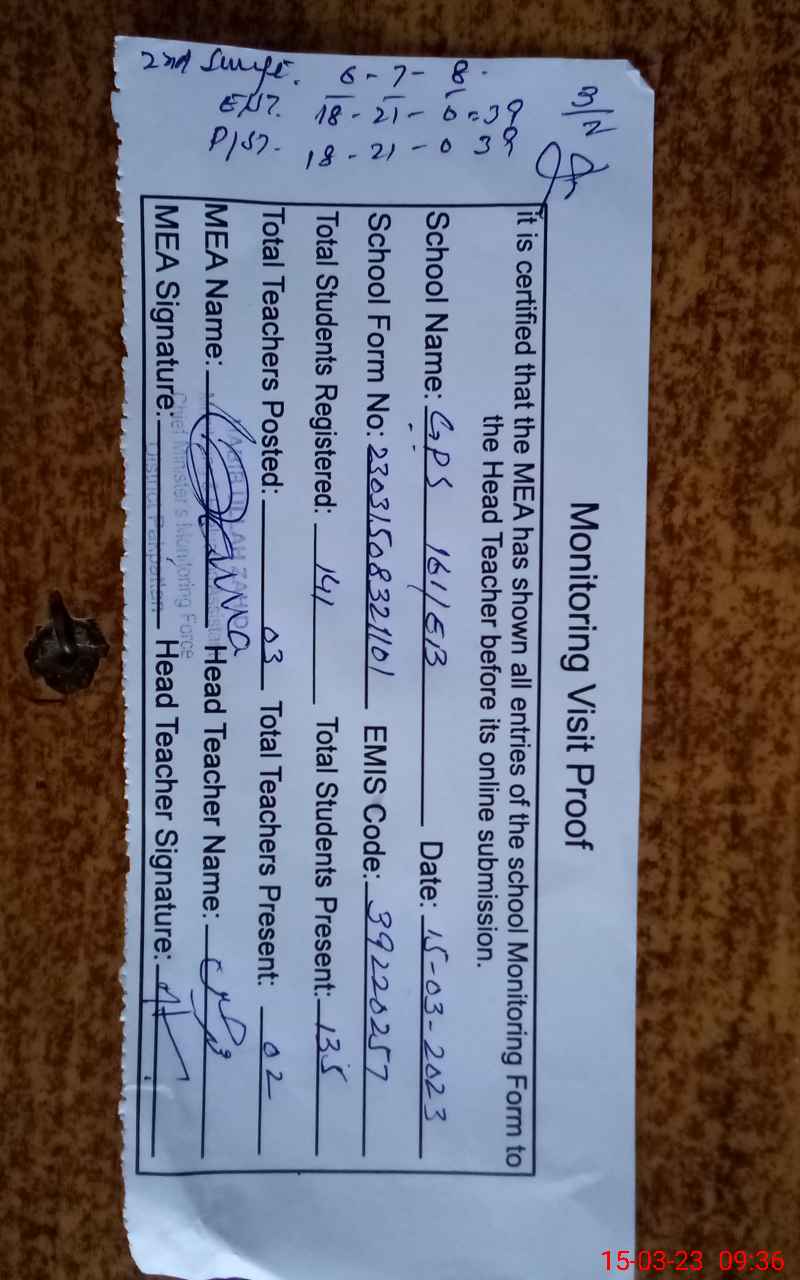 Monitoring Visit Proof
it is certified that the MEA has shown all entries of the school Monitoring Form to
the Head Teacher before its online submission.
School Name: GPS 161/EB Date: 15-03-2023
School Form No: 23031508321101 EMIS Code: 39220257
Total Students Registered: 141 Total Students Present: 135
Total Teachers Posted: 03 Total Teachers Present: 02
MEA Name: Head Teacher Name:
MEA Signature: Head Teacher Signature:
Chief Minister's Monitoring Force
District Pakpattan
2nd 6 - 7 - 8
18 - 21 - 0 = 39
18 - 21 - 0 39
15-03-23 09:36